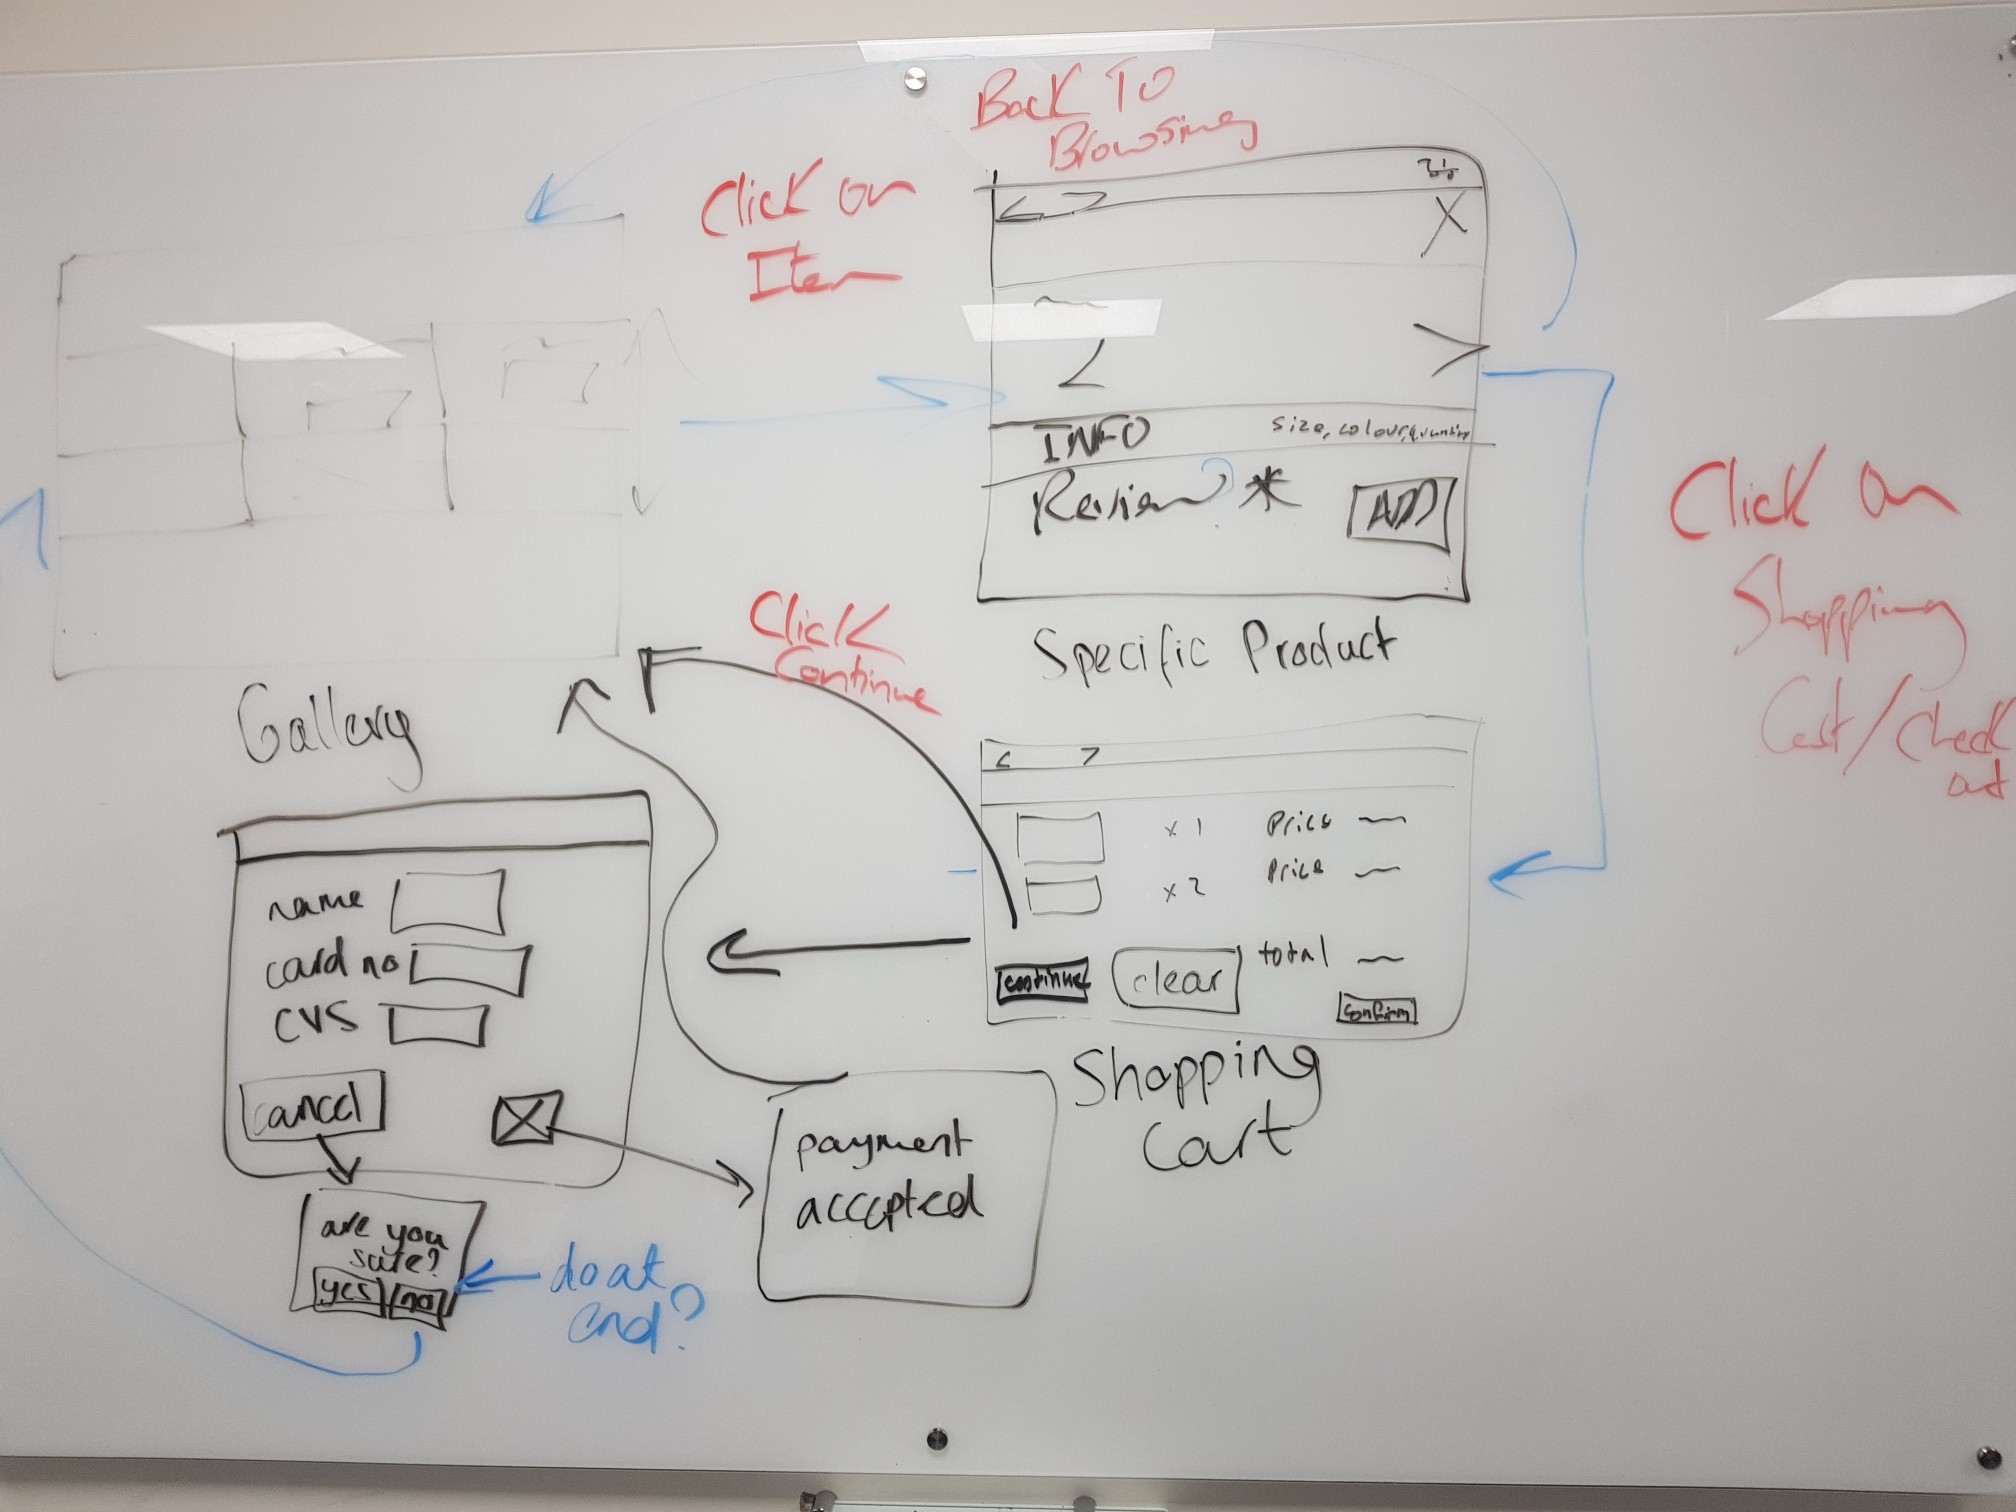 Back To
Browsing
Click on
Item
X
INFO
size, colour, quantity
Review *
ADD
Specific Product
Click
Continue
Click on
Shopping
Cart/Check
out
Gallery
x 1 Price
x 2 Price
total
continue
clear
confirm
Shopping
Cart
name
card no
CVS
cancel
payment
accepted
are you
sure?
yes no
do at
end?